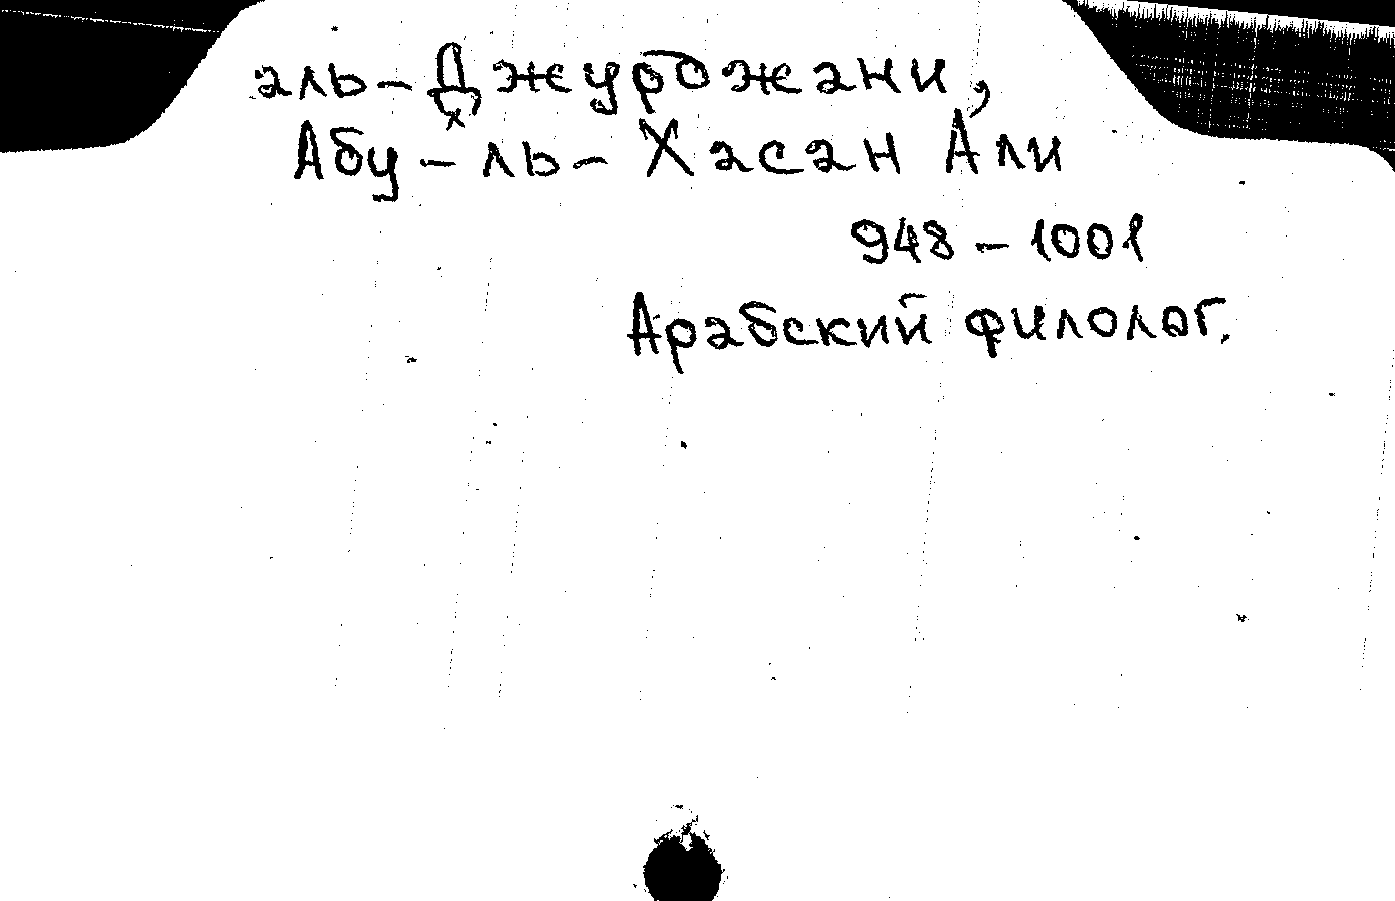 аль-Джурджани,
Абу-ль-Хасан Али
948-1001
Арабский филолог.